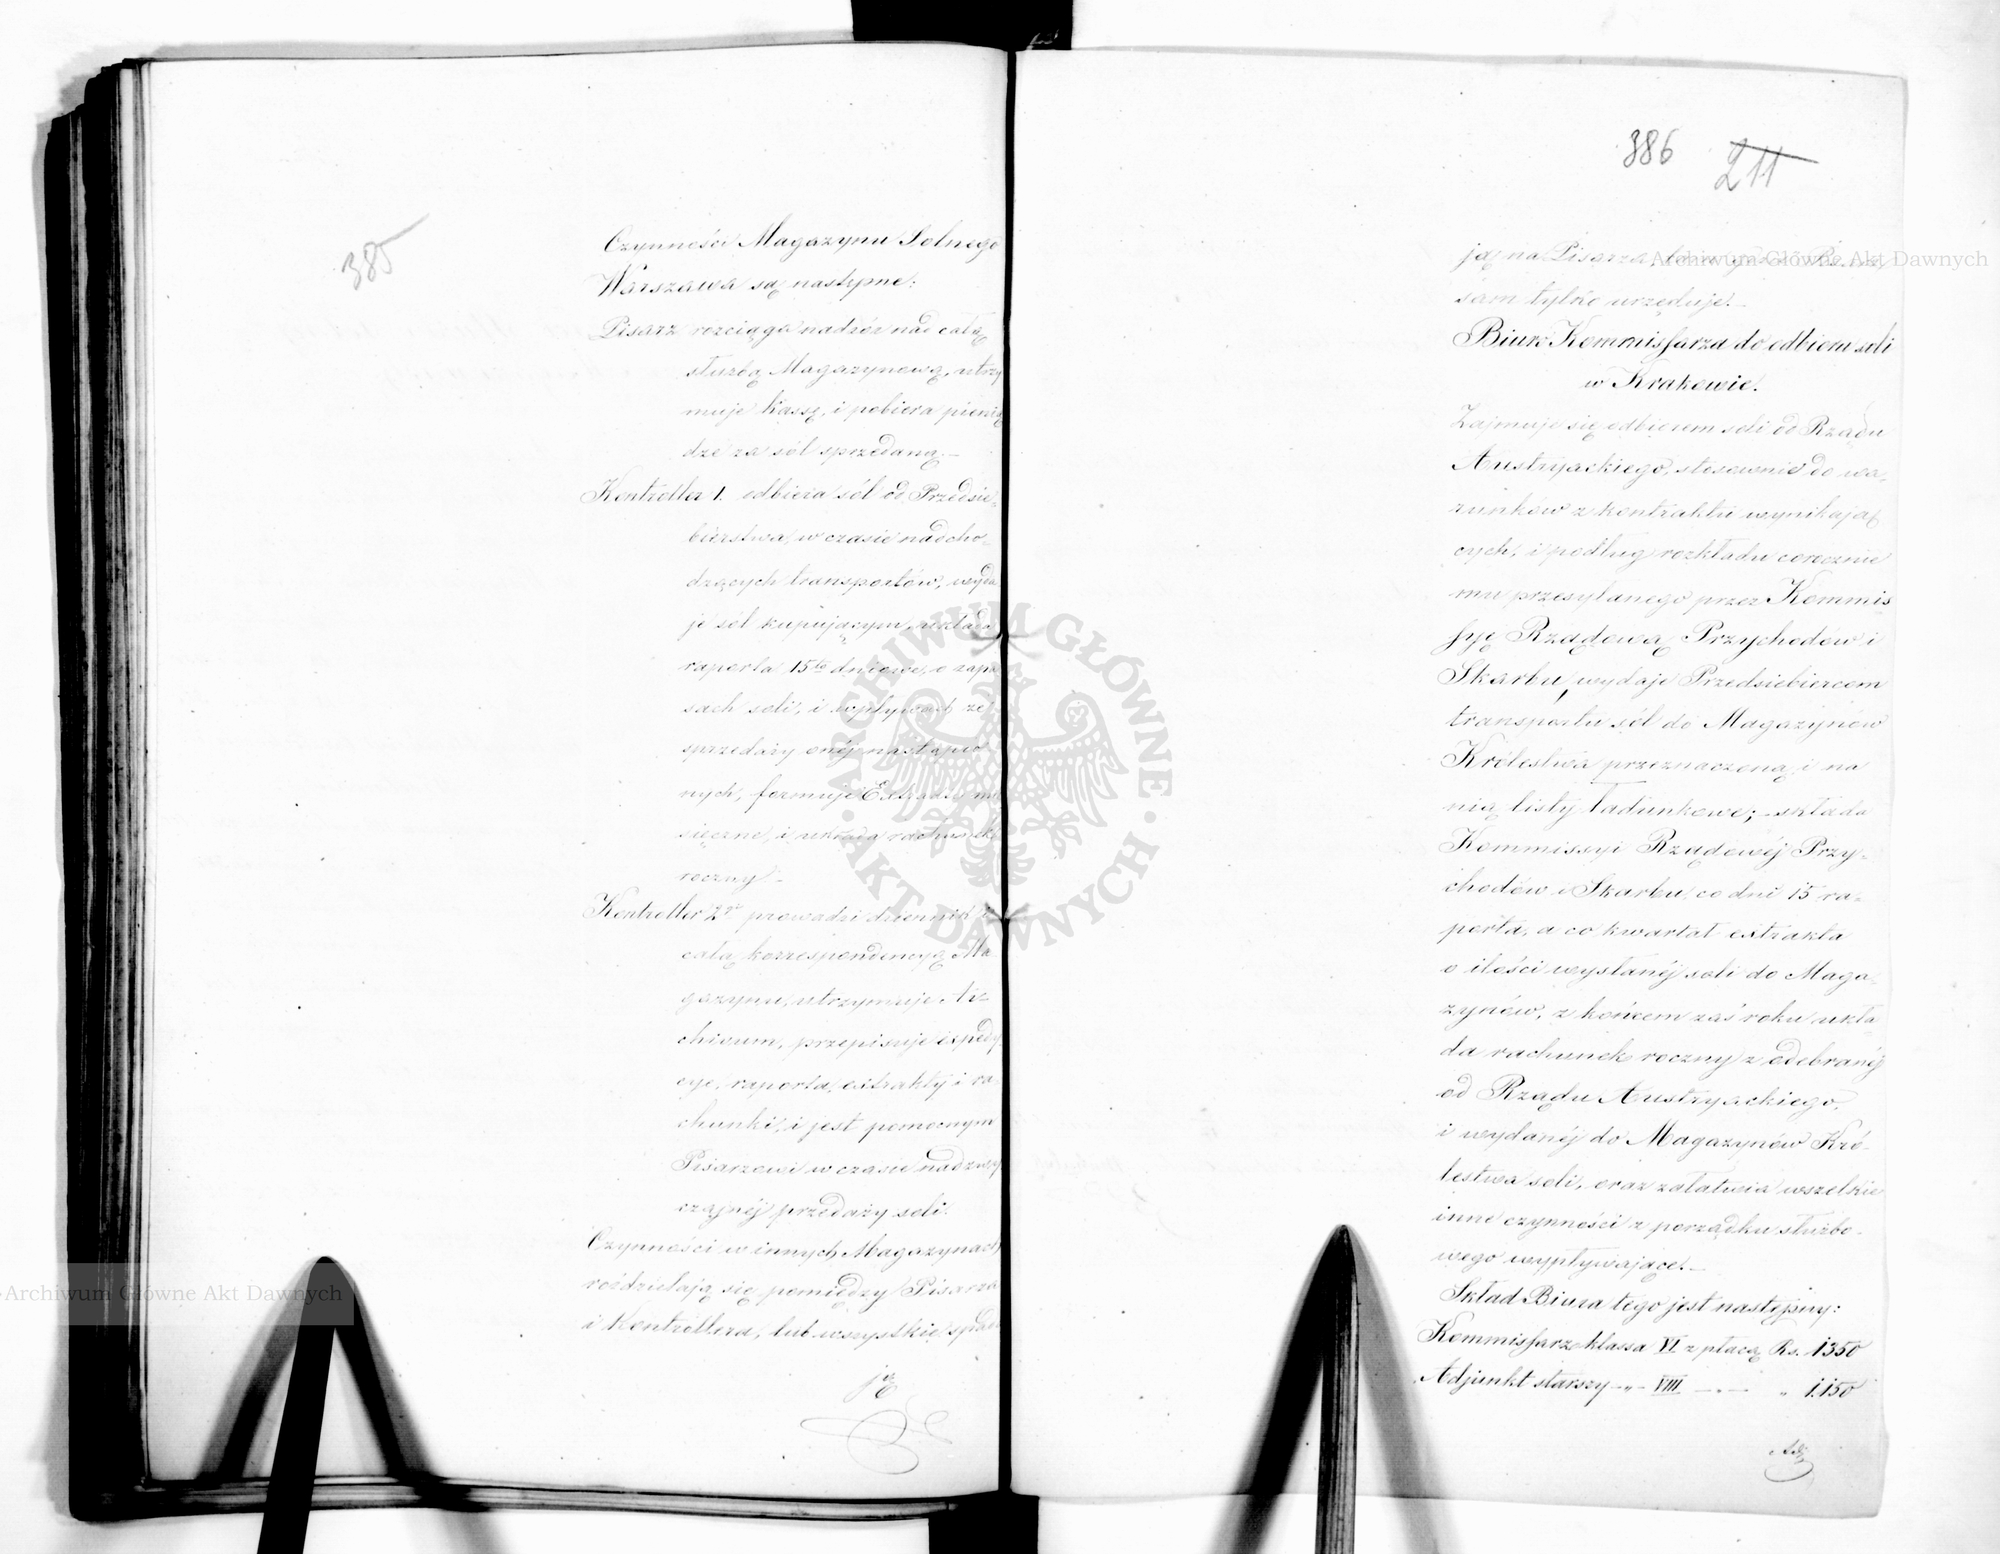 385
Czynności Magazynu Solnego
Warszawa są następne:
Pisarz rozciąga nadzór nad całą
służbą Magazynową, utrzy
muje kassę, i pobiera pienią
dze za sól sprzedaną.—
Kontroller 1. odbiera sól od Przedsię-
bierstwa, w czasie nadcho-
dzących transportów, wyda
je sól kupującym, układa
raporta 15to dniowe, o zapa
sach soli, i wpływach ze
sprzedaży onéj nastąpio
nych, formuje Extrakta mie
sięczne, i układa rachunek
roczny.—
Kontroller 2gi prowadzi dziennik i
całą korrespondencyą Ma
gazynu, utrzymuje Ar-
chivum, przepisuje expedy
cye, raporta, extrakty i ra-
chunki, i jest pomocnym
Pisarzowi w czasie nadzwy
czajnéj przedaży soli.
Czynności w innych Magazynach
rozdzielają się pomiędzy Pisarza
i Kontrollera, lub wszystkie spada
ją
386 211
ją na Pisarza,
sam tylko urzęduje.—
Biuro Kommissarza do odbioru soli
w Krakowie.
Zajmuje się odbiorem soli od Rządu
Austryackiego, stosownie do wa-
runków z kontraktu wynikają
cych, i podług rozkładu corocznie
mu przesyłanego przez Kommis
syę Rządową Przychodów i
Skarbu, wydaje Przedsiebiercom
transportu sól do Magazynów
Królestwa przeznaczoną, i na
nią listy ładunkowe; – składa
Kommissyi Rządowéj Przy-
chodów i Skarbu, co dni 15 ra-
porta, a co kwartał extrakta
o ilości wysłanéj soli do Maga-
zynów, z końcem zaś roku ukła
da rachunek roczny z odebranéj
od Rządu Austryackiego,
i wydanéj do Magazynów Kró-
lestwa soli, oraz załatwia wszelkie
inne czynności z porządku służbo-
wego wypływające.—
Skład Biura tego jest następny:
Kommissarz klassa VI z płacą Rs. 1350
Adjunkt starszy —"— VIII —"— " 1.150
Adj
Archiwum Główne Akt Dawnych
Archiwum Główne Akt Dawnych
ARCHIWUM GŁÓWNE · AKT DAWNYCH ·